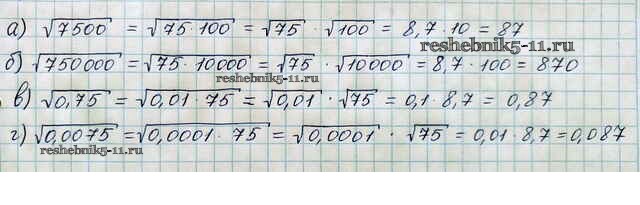 а) √7500 = √75·100 = √75 · √100 = 8,7·10 = 87
reshebnik5-11.ru
б) √750000 = √75·10000 = √75 · √10000 = 8,7·100 = 870
reshebnik5-11.ru
в) √0,75 = √0,01·75 = √0,01 · √75 = 0,1·8,7 = 0,87
г) √0,0075 = √0,0001·75 = √0,0001 · √75 = 0,01·8,7 = 0,087
reshebnik5-11.ru